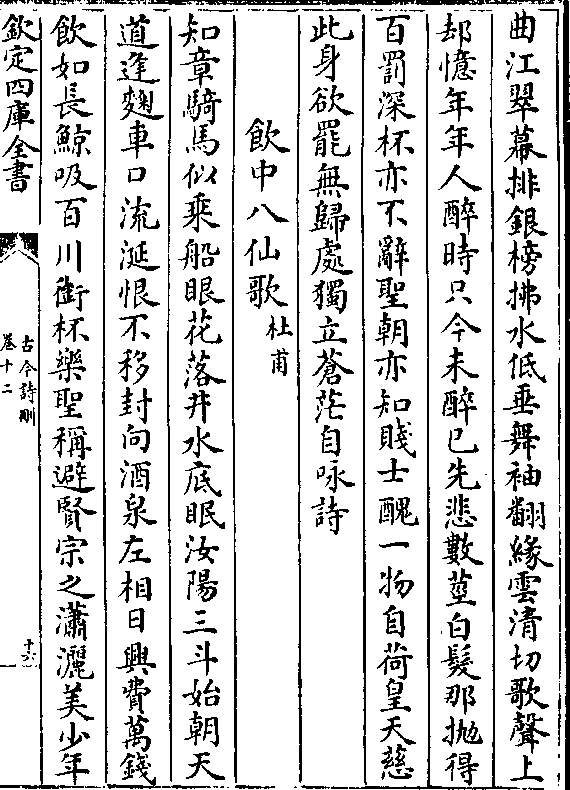 曲江翠幕排銀榜拂水低垂舞袖翻緣雲清切歌聲上
却憶年年人醉時只今未醉已先悲數莖白髮那抛得
百罰深杯亦不辭聖朝亦知賤士醜一物自荷皇天慈
此身欲罷無歸處獨立蒼茫自咏詩
飲中八仙歌杜甫
知章騎馬似乘船眼花落井水底眠汝陽三斗始朝天
道逢麴車口流涎恨不移封向酒泉左相日興費萬錢
飲如長鯨吸百川銜杯樂聖稱避賢宗之瀟灑美少年
欽定四庫全書
古今詩刪
卷十二
十六